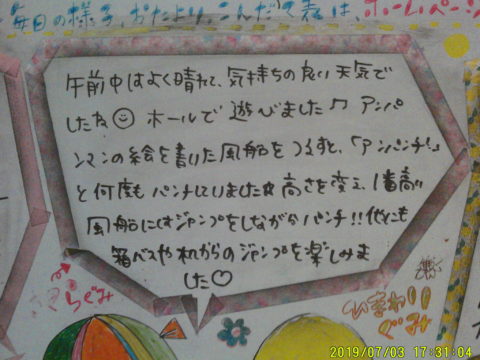 毎日の様子、おたより、こんだて表は、ホームページ
午前中はよく晴れて、気持ちの良い天気で
したね☺ ホールで遊びました♫ アンパ
ンマンの絵を書いた風船をつるすと、「アンパンチ!」
と何度もパンチしていました☆高さを変え、1番高い
風船にはジャンプをしながらパンチ!!他にも
箱ベスや机からのジャンプを楽しみま
した♡
らぐみ
ひまわり
ぐみ
2019/07/03 17:31:04